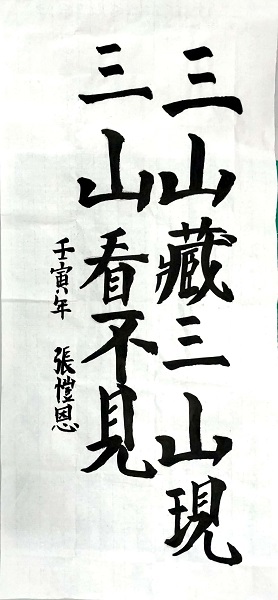 三山藏三山現
三山看不見
壬寅年 張愷恩